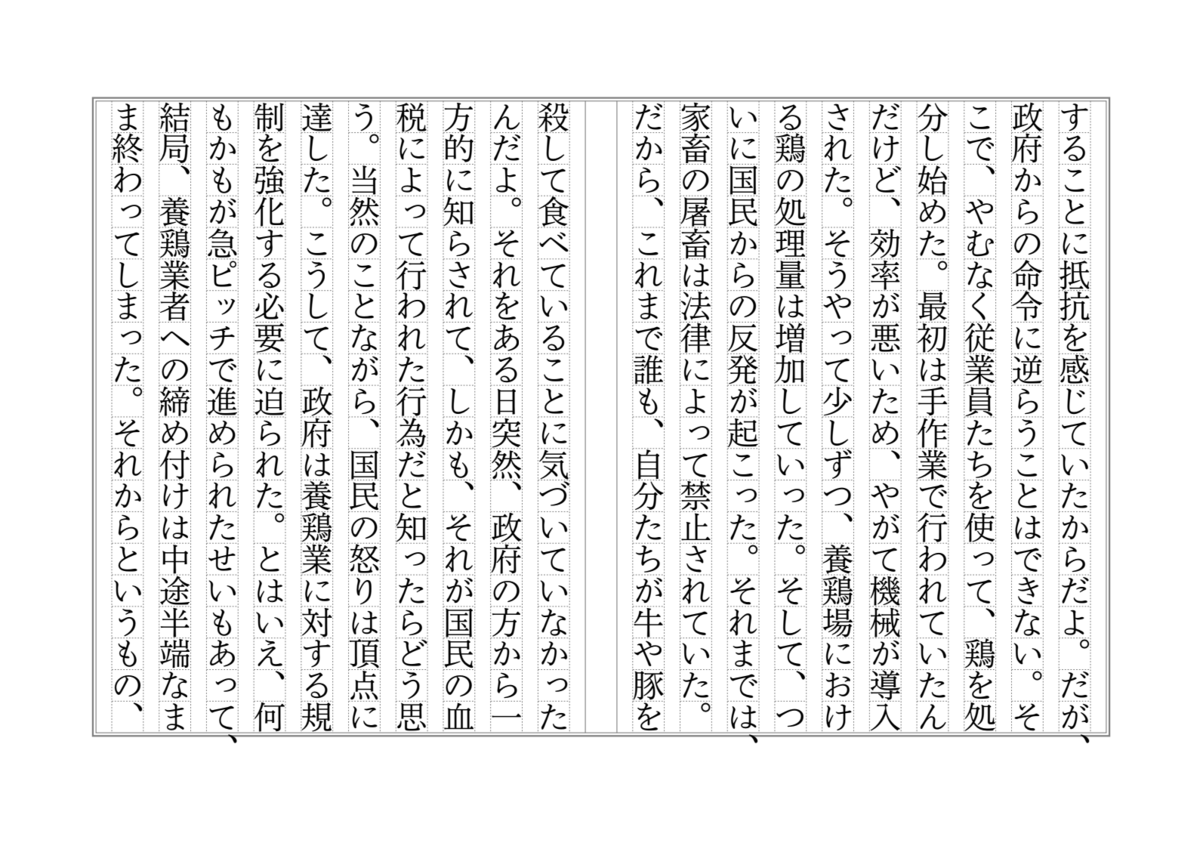 することに抵抗を感じていたからだよ。だが、
政府からの命令に逆らうことはできない。そ
こで、やむなく従業員たちを使って、鶏を処
分し始めた。最初は手作業で行われていたん
だけど、効率が悪いため、やがて機械が導入
された。そうやって少しずつ、養鶏場におけ
る鶏の処理量は増加していった。そして、つ
いに国民からの反発が起こった。それまでは、
家畜の屠畜は法律によって禁止されていた。
だから、これまで誰も、自分たちが牛や豚を
殺して食べていることに気づいていなかった
んだよ。それをある日突然、政府の方から一
方的に知らされて、しかも、それが国民の血
税によって行われた行為だと知ったらどう思
う。当然のことながら、国民の怒りは頂点に
達した。こうして、政府は養鶏業に対する規
制を強化する必要に迫られた。とはいえ、何
もかもが急ピッチで進められたせいもあって、
結局、養鶏業者への締め付けは中途半端なま
ま終わってしまった。それからというもの、